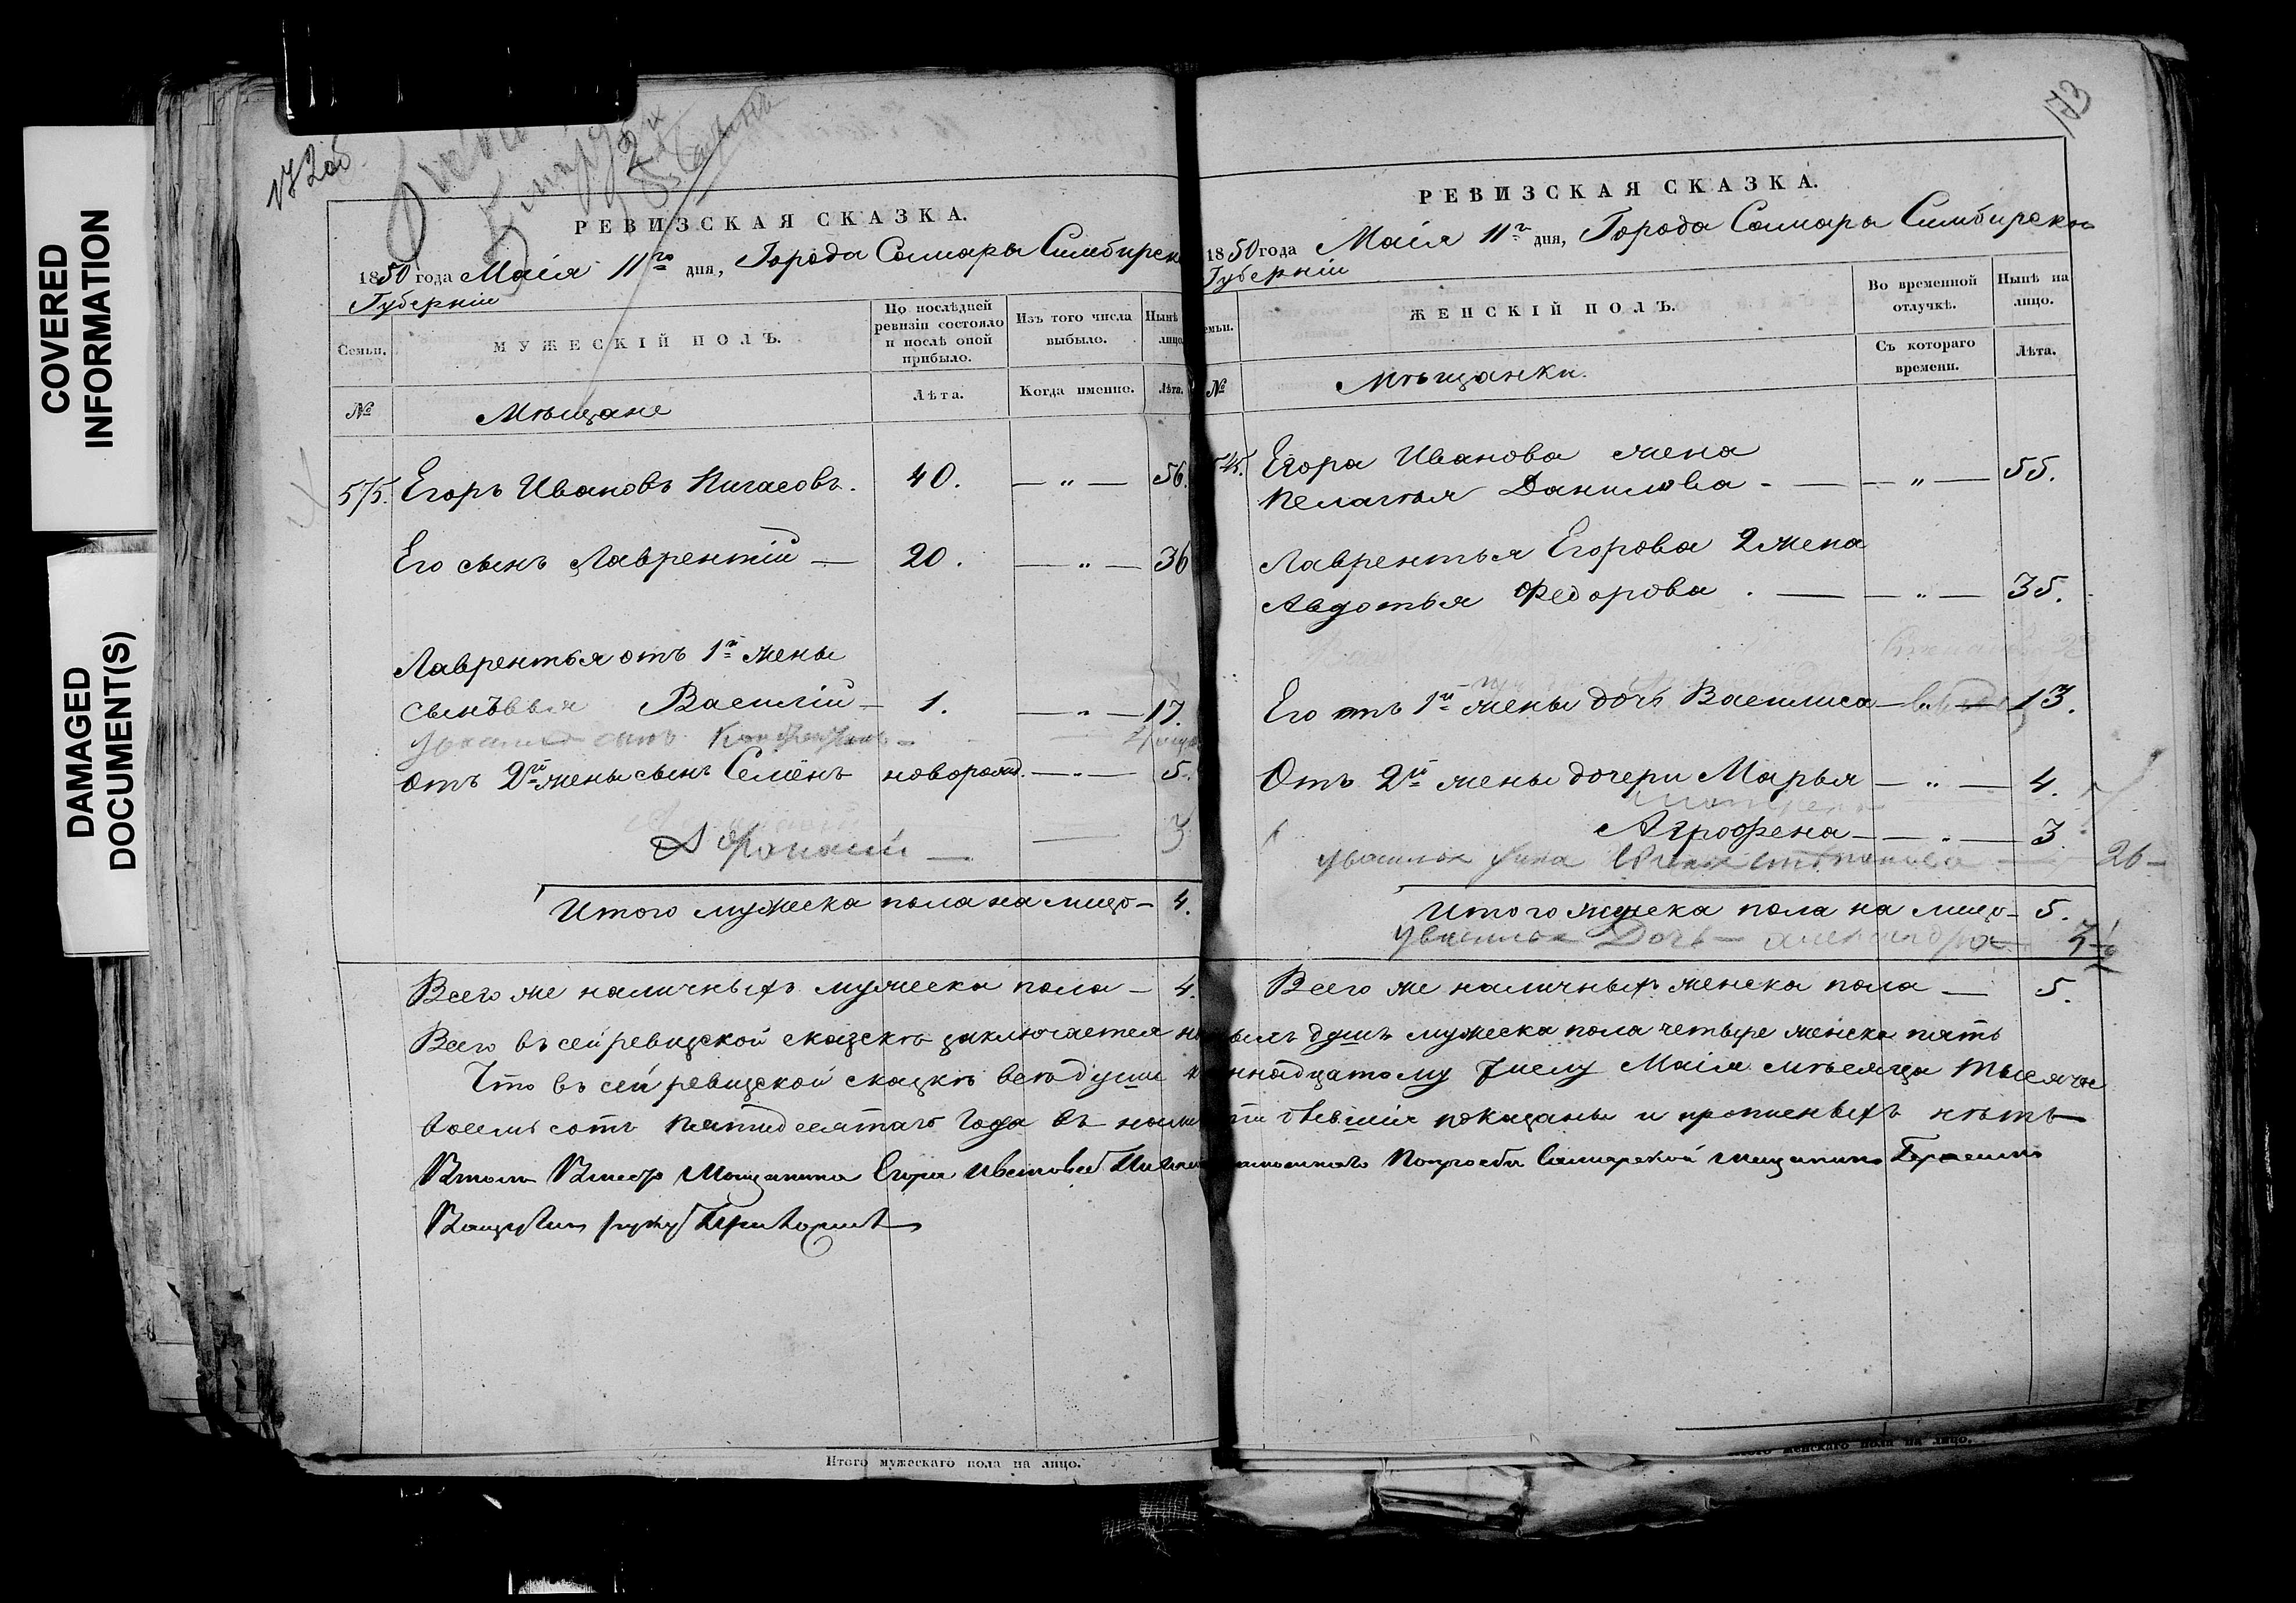 COVERED
INFORMATION
DAMAGED
DOCUMENT(S)
172об
РЕВИЗСКАЯ СКАЗКА.
1850 года Маія 11го дня, Города Самары Симбирско
Губерніи
Семьи.
МУЖЕСКІЙ ПОЛЪ.
По послѣдней ревизіи состояло и послѣ оной прибыло.
Изъ того числа выбыло.
Нынѣ лицо
№
Мѣщане
Лѣта.
Когда именно.
Лѣта.
575. Егоръ Ивановъ Пигасовъ. 40. — „ — 56.
Его сынъ Лаврентій — 20. — „ — 36
Лаврентья отъ 1й жены
сыновья Василій — 1. — „ — 17.
Отъ 2й жены сынъ Семёнъ новорожд. — „ — 5.
Афонасій — — 3
Итого мужеска пола на лицо — 4.
Всего же наличныхъ мужеска пола — 4.
173
РЕВИЗСКАЯ СКАЗКА.
1850 года Маія 11го дня, Города Самары Симбирско
Губерніи
емьи.
ЖЕНСКІЙ ПОЛЪ.
Во временной отлучкѣ.
Нынѣ на лицо.
Съ котораго времени.
Лѣта.
№
Мѣщанки.
Егора Иванова жена
Пелагѣя Данилова — „ — 55.
Лаврентья Егорова 2 жена
Авдотья Федорова — „ — 35.
Его отъ 1й жены дочь Василиса — 13.
Отъ 2й жены дочери Марья — „ — 4.
Агрофена — „ — 3.
26 —
Итого женска пола на лицо — 5.
Дочь — александра
Всего же наличныхъ женска пола — 5.
Всего въ сей ревизской сказскѣ заключается душъ мужеска пола четыре женска пять
Что въ сей ревизской сказкѣ всѣ души числу Маія мѣсяца тысяча
восемь сотъ пятидесятаго года въ показаны и прописныхъ нѣтъ
Въ томъ Вместо Мещанина Егора Иванова Самарской мещанинъ Герасимъ
руку Приложилъ
Итого мужескаго пола на лицо.
женскаго пола на лицо.